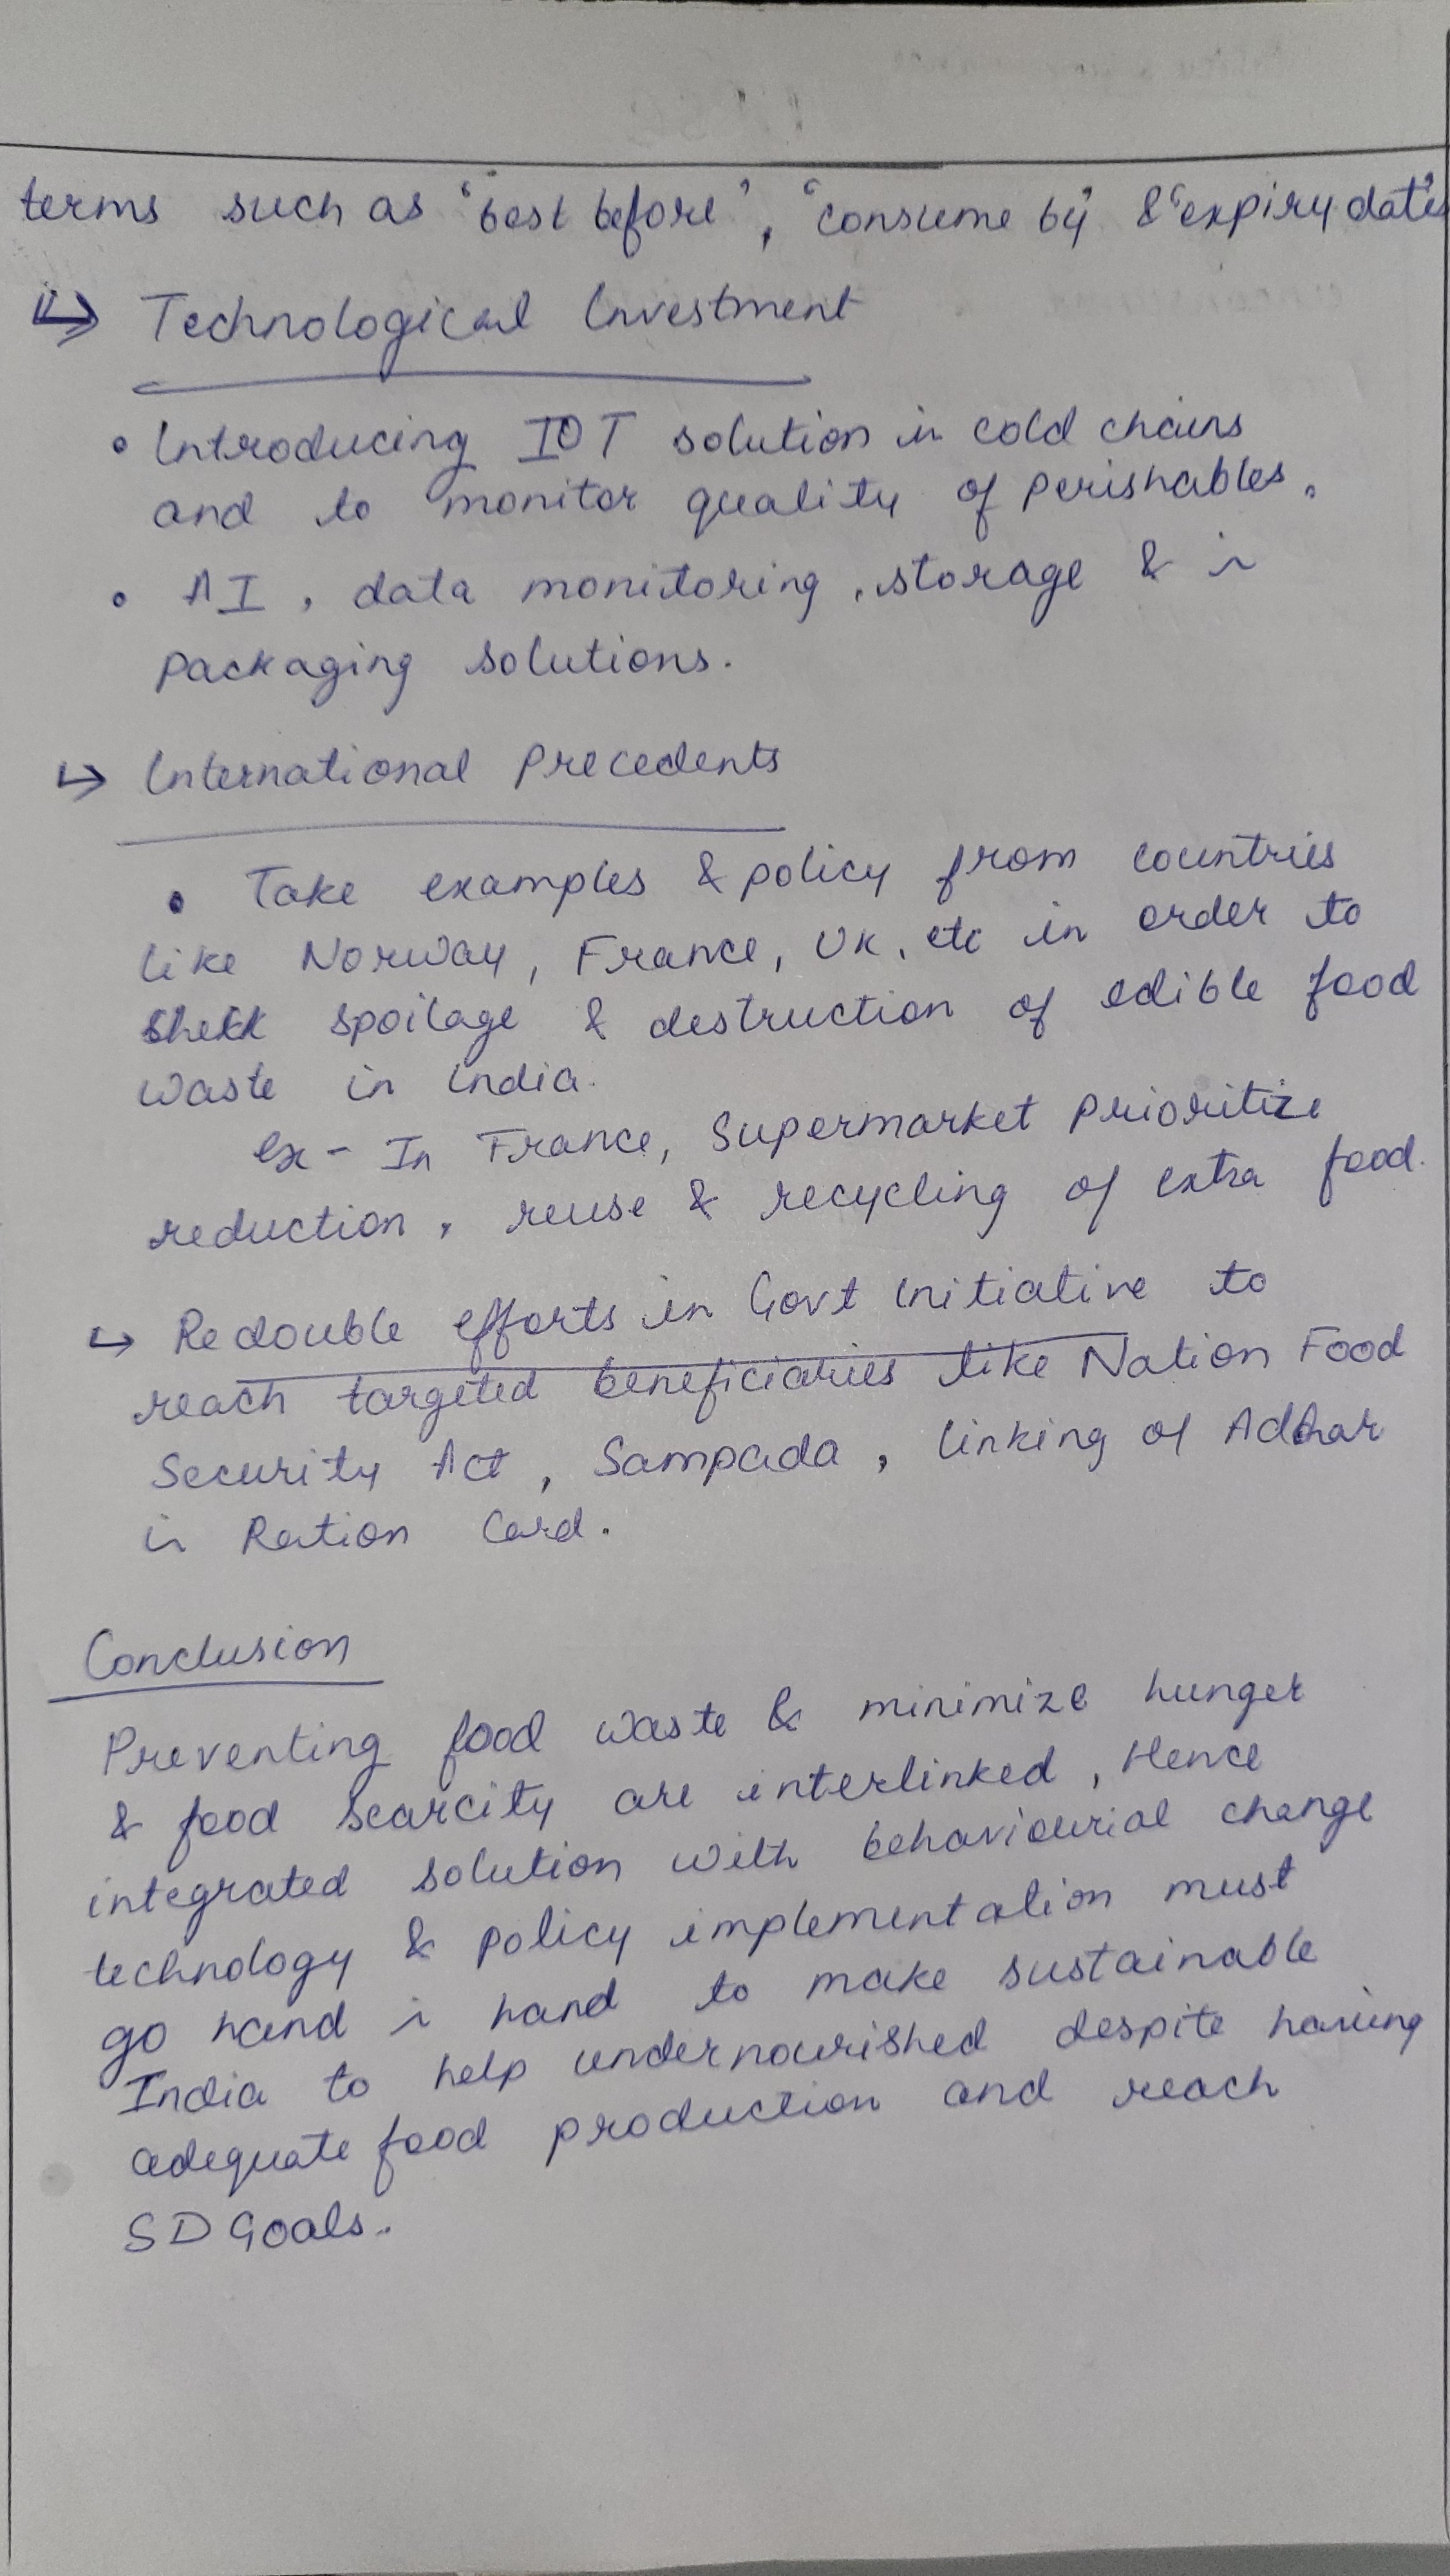 terms such as "best before", "consume by" & "expiry date"
↳ Technological Investment
• Introducing IOT solution in cold chains
and to monitor quality of perishables.
• AI, data monitoring, storage & in
packaging solutions.
↳ International Precedents
• Take examples & policy from countries
like Norway, France, UK, etc in order to
spoilage & destruction of edible food
waste in India.
ex- In France, Supermarket prioritize
reduction, reuse & recycling of extra food.
↳ Redouble efforts in Govt initiative to
reach targeted beneficiaries like Nation Food
Security Act, Sampada, linking of Adhar
in Ration Card.
Conclusion
Preventing food waste & minimize hunger
& food scarcity are interlinked, Hence
integrated solution with behaviourial change
technology & policy implementation must
go hand in hand to make sustainable
India to help undernourished despite having
adequate food production and reach
SD Goals.